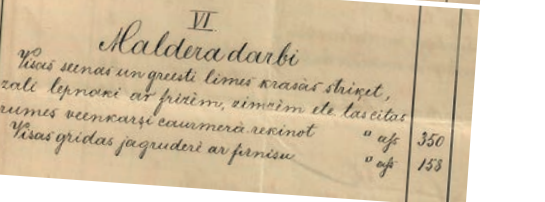 VI
Maldera darbi
Visas seenas un greesti limes krasās striķet,
zali lepnaki ar frizēm, zimēm etc. tas citas
rumes veenkarši caurmerā rekinot " 350
Visas gridas jagruderē ar firnisu " 158